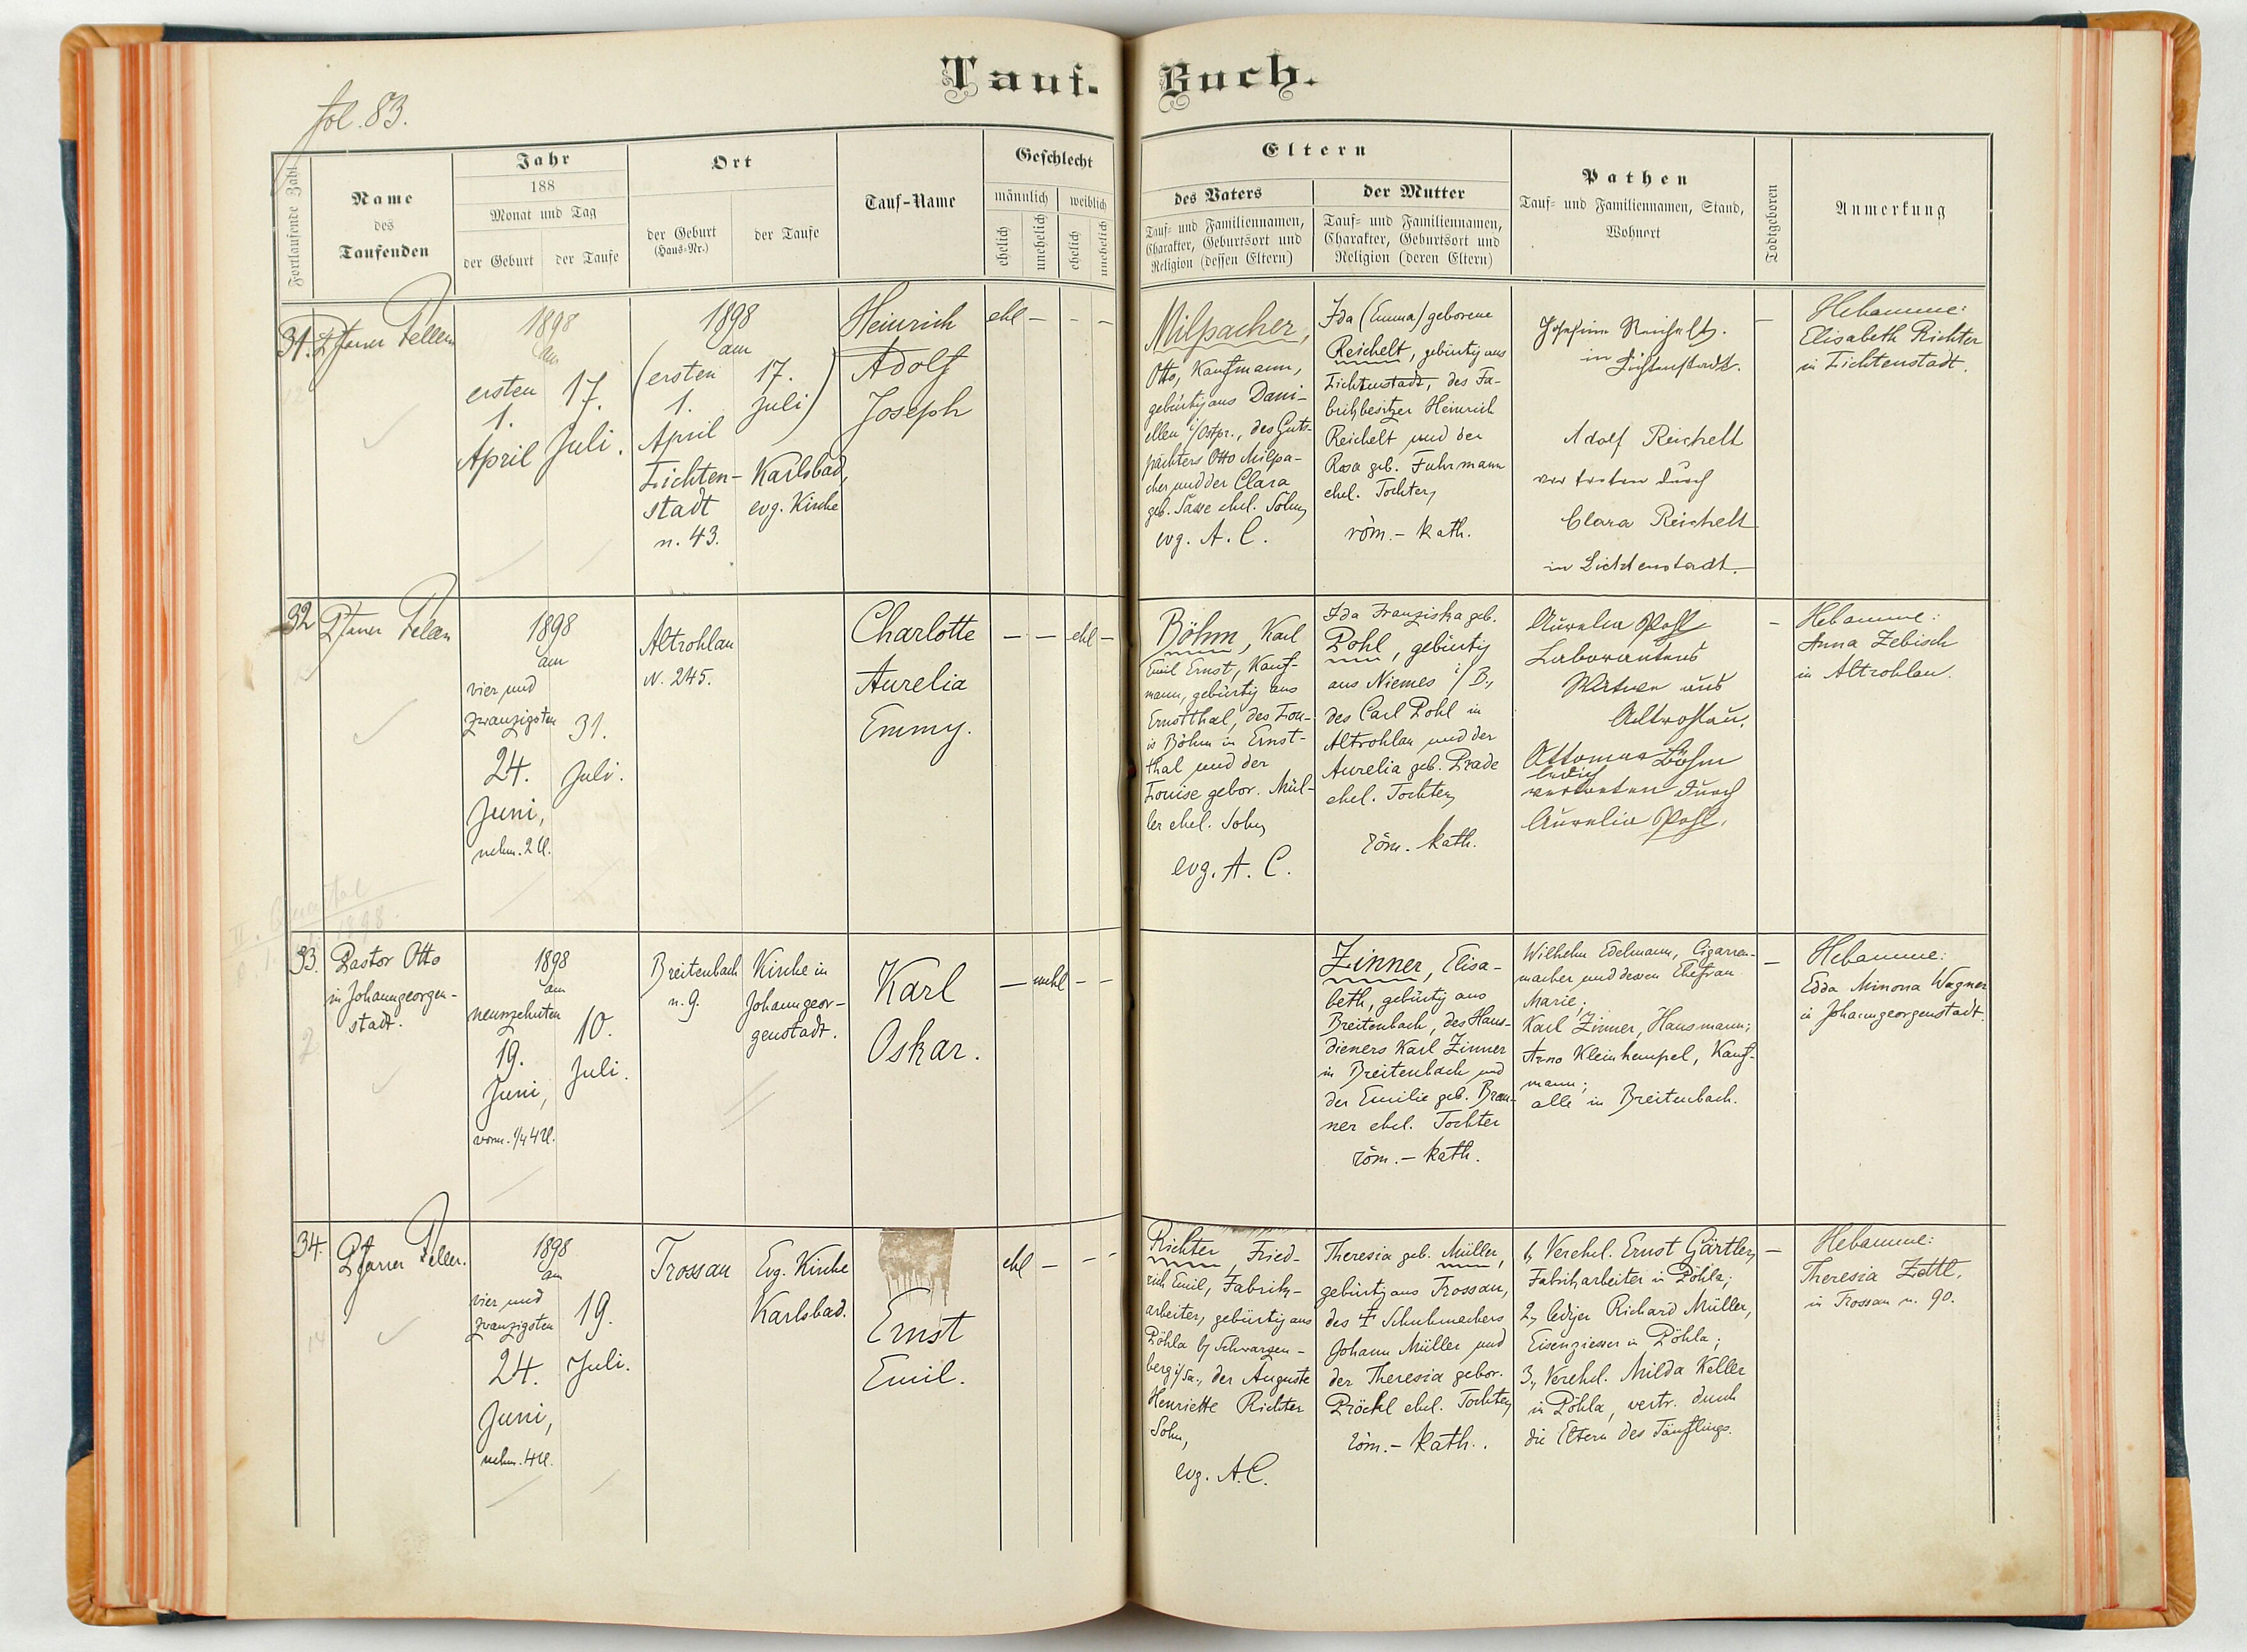 Tauf-
Buch.
fol. 83.
Fortlaufende Zahl
Name
des
Taufenden
Jahr
188
Monat und Tag
der Geburt
der Taufe
Ort
der Geburt
(Haus-Nr.)
der Taufe
Tauf-Name
Geschlecht
männlich
weiblich
ehelich
unehelich
ehelich
unehelich
Eltern
des Vaters
Tauf- und Familiennamen,
Charakter, Geburtsort und
Religion (dessen Eltern)
der Mutter
Tauf- und Familiennamen,
Charakter, Geburtsort und
Religion (deren Eltern)
Pathen
Tauf- und Familiennamen, Stand,
Wohnort
Todtgeboren
Anmerkung
31.
Pfarrer
1898
am
ersten
1.
April
17.
Juli.
1898
am
(ersten
1.
April
Lichten-
stadt
n. 43.
17.
Juli)
Karlsbad,
evg. Kirche
Heinrich
Adolf
Joseph
ehl – - –
Milpacher,
Otto, Kaufmann,
gebürtig aus Dani-
ellen i/Ostpr., des Guts-
pächters Otto Milpa-
cher und der Clara
geb. Sasse ehel. Sohn,
evg. A. C.
Ida (Emma) geborene
Reichelt, gebürtig aus
Lichtenstadt, des Fa-
brikbesitzer Heinrich
Reichelt und der
Rosa geb. Fuhrmann
ehel. Tochter,
röm. - kath.
Josefine Reichelt.
in Lichtenstadt.
Adolf Reichelt
vertreten durch
Clara Reichelt
in Lichtenstadt.
–
Hebamme:
Elisabeth Richter
in Lichtenstadt.
32
Pfarrer
1898
am
vier und
zwanzigsten
24.
Juni,
nchm. 2 U.
31.
Juli.
Altrohlau
N. 245.
Charlotte
Aurelia
Emmy.
– – ehl –
Böhm, Karl
Emil Ernst, Kauf-
mann, gebürtig aus
Ernstthal, des Lou-
is Böhm in Ernst-
thal und der
Louise gebor. Mül-
ler ehel. Sohn,
evg. A. C.
Ida Franziska geb.
Pohl, gebürtig
aus Niemes i/B.,
des Carl Pohl in
Altrohlau und der
Aurelia geb. Prade
ehel. Tochter,
röm. kath.
Aurelia Pohl
Laborantens
Witwe aus
Altrohlau.
Ottomar Böhm
ledig
vertreten durch
Aurelia Pohl.
–
Hebamme:
Anna Zebisch
in Altrohlau.
II. Quartal
1898.
33.
Pastor Otto
in Johanngeorgen-
stadt.
1898
am
neunzehnten
19.
Juni,
vorm. 1/4 4 U.
10.
Juli.
Breitenbach
n. 9.
Kirche in
Johanngeor-
genstadt.
Karl
Oskar.
– unehl - -
Zinner, Elisa-
beth, gebürtig aus
Breitenbach, des Haus-
dieners Karl Zinner
in Breitenbach und
der Emilie geb. Brau-
ner ehel. Tochter
röm. - kath.
Wilhelm Edelmann, Cigarren-
macher und dessen Ehefrau
Marie;
Karl Zinner, Hausmann;
Arno Kleinhempel, Kauf-
mann;
alle in Breitenbach.
–
Hebamme:
Edda Minona Wagner
in Johanngeorgenstadt.
34.
Pfarrer
1898
am
vier und
zwanzigsten
24.
Juni,
nchm. 4 U.
19.
Juli.
Trossau
Evg. Kirche
Karlsbad.
Ernst
Emil.
ehl – - -
Richter, Fried-
rich Emil, Fabrik-
arbeiter, gebürtig aus
Pöhla b/ Schwarzen-
berg i/Sa., der Auguste
Henriette Richter
Sohn,
evg. A. C.
Theresia geb. Müller,
gebürtig aus Trossau,
des † Schuhmachers
Johann Müller und
der Theresia gebor.
Pröckl ehel. Tochter,
röm. - kath.
1, Verehel. Ernst Gärtler,
Fabrikarbeiter in Pöhla;
2, lediger Richard Müller,
Eisengiesser in Pöhla;
3, Verehel. Milda Keller
in Pöhla, vertr. durch
die Eltern des Täuflings.
–
Hebamme:
Theresia Zettl,
in Trossau n. 90.